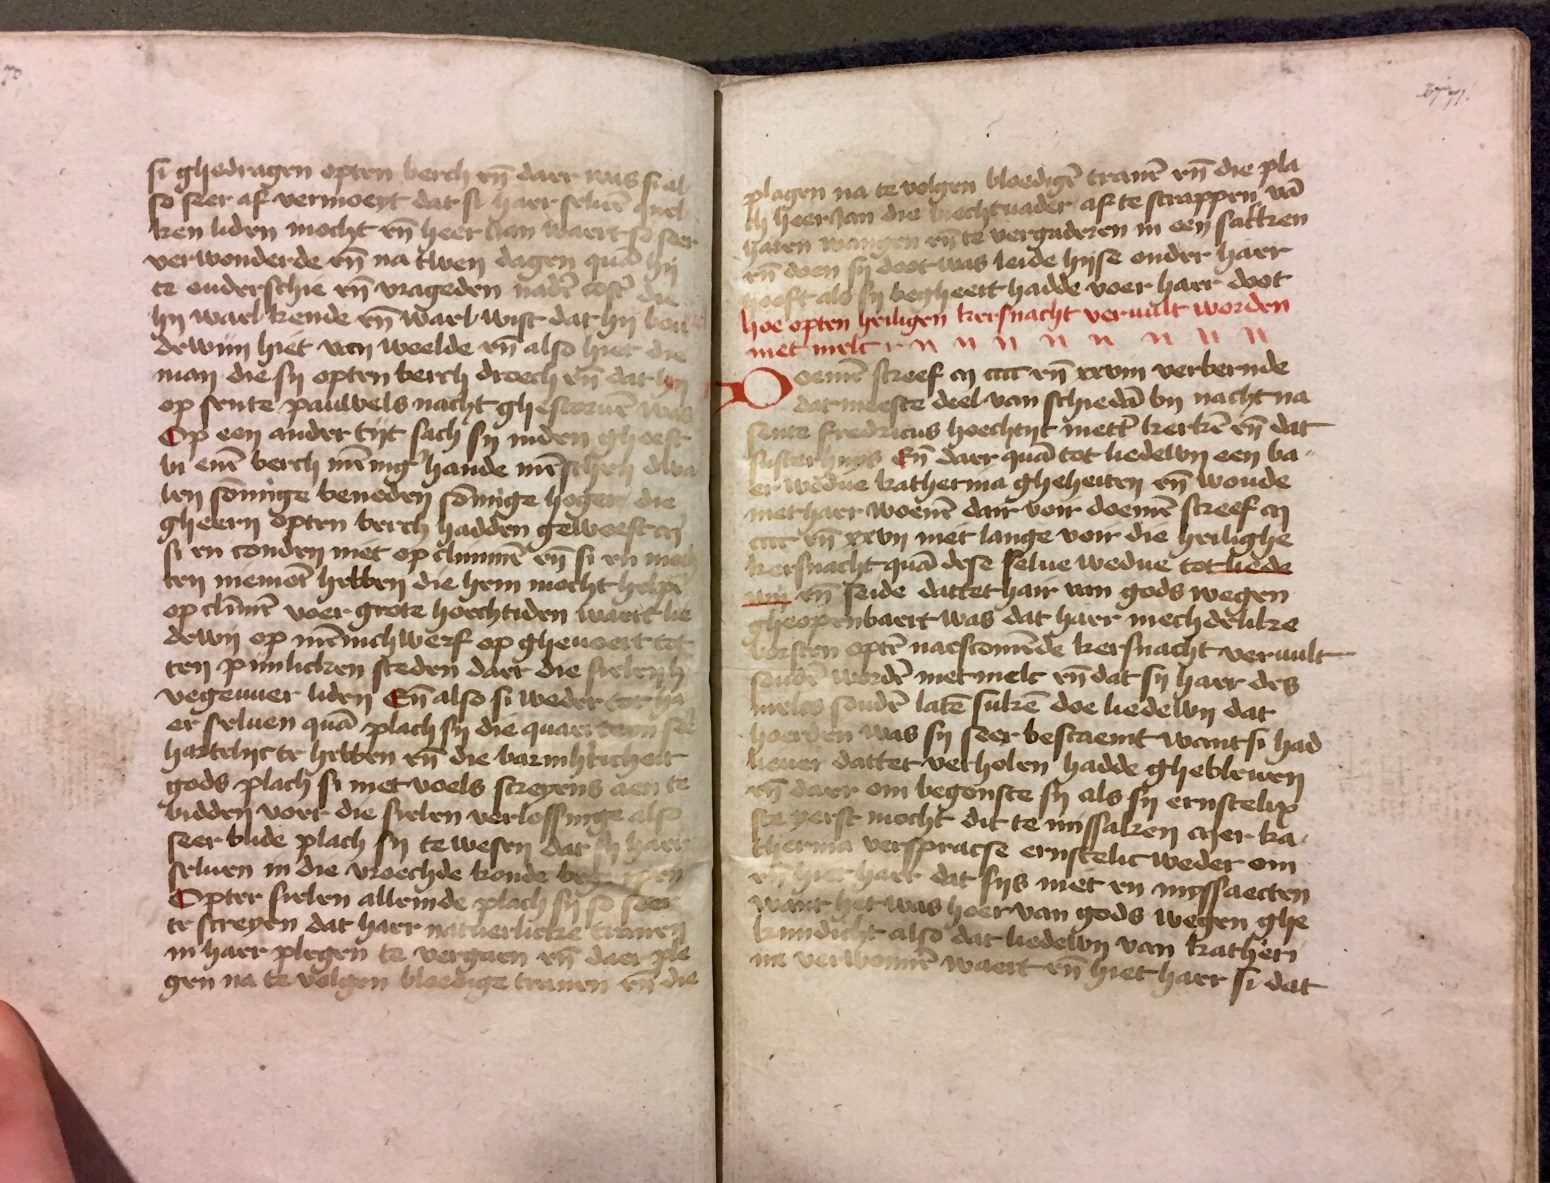 70
si ghedragen opten berch en̄ daer was si al
so seer af vermoeyt dat si haer seluē quel
ken liden mocht en̄ heer Jan waert so seer
verwonderde en̄ na twen dagen quā hij
te onderschie en̄ vrageden
hij wael kende en̄ wael wist dat hij bou
dewijn hiet van woelde en̄ also hiet die
man die sy opten berch droech en̄ dat hij
op sente pauwels nacht ghestoruē was
Op een ander tijt sach sy in den gheest
bi enē berch mēnigh hande mēschen dwa
len sōmige beneden sōmige hoger die
gheern opten berch hadden geweest en̄
si en conden niet op climmē en̄ si en moch
ten niemōt hebben die hem mocht helpē
op clīmē voer grote hoechtiden waert lie
dewij op mēnich werf op gheuoert tot
ten pijnlicken steden daer die sielen
vegeuuer liden En̄ also si weder tot ha
er seluen quā plach sy die
hartelijc te hebben en̄ die barmh̄ticheit
gods plach si met voels screyens aen te
bidden voer die sielen verlossinge also
seer blide plach sy te wesen dat sy haer
seluen in die vroechde konde
Opter sielen alleinde plach sy so seer
te screyen dat haer natuerlicke tranen
in haer plegen te vergaen en̄ daer ple
gen na te volgen bloedige tranen en̄ die
71.
plagen na te volgen bloedigē tranē en̄ die pla
ch heer Jan die biechtuader af te scrappen vā
haren wangen en̄ te vergaderen in een satken
en̄ doen sy doot was leide hijse onder haer
hooft als sy begheert hadde voer haer doot
hoe opten heiligen kersnacht veruult worden
met melc
Doemē screef m cccc en̄ xxviij verbernde
dat meeste deel van schiedā bij nacht na
sente fredricus hoechtijt mett kerkē en̄ dat
susterhuys En̄ daer quā tot liedewy een ba
er wedue katherina gheheiten en̄ woude
met haer woenē dair voir doemē screef m
cccc en̄ xxvij niet lange voir die heilighe
kersnacht quā dese selue wedue tot liede
wij en̄ seide dattet hair van gods wegen
gheopenbaert was dat haer mechdelike
borsten optē naestcomēde kersnacht veruult
soudē wordē met melc en̄ dat sy haer des
melcs soudē latē sukē doe liedewy dat
hoerden was sy seer bescaemt want si had
lieuer dattet verholen hadde ghebleuen
en̄ daer om begonste sy als sy ernstelix
ste yerst mocht dit te missaken mer ka
therina versprack se ernstelic weder om
en̄ hiet haer dat sys niet en myssaecten
want het was hoer van gods wegen ghe
kundicht also dat liedewy van katheri
na verwonnē waert en̄ hiet haer si dat